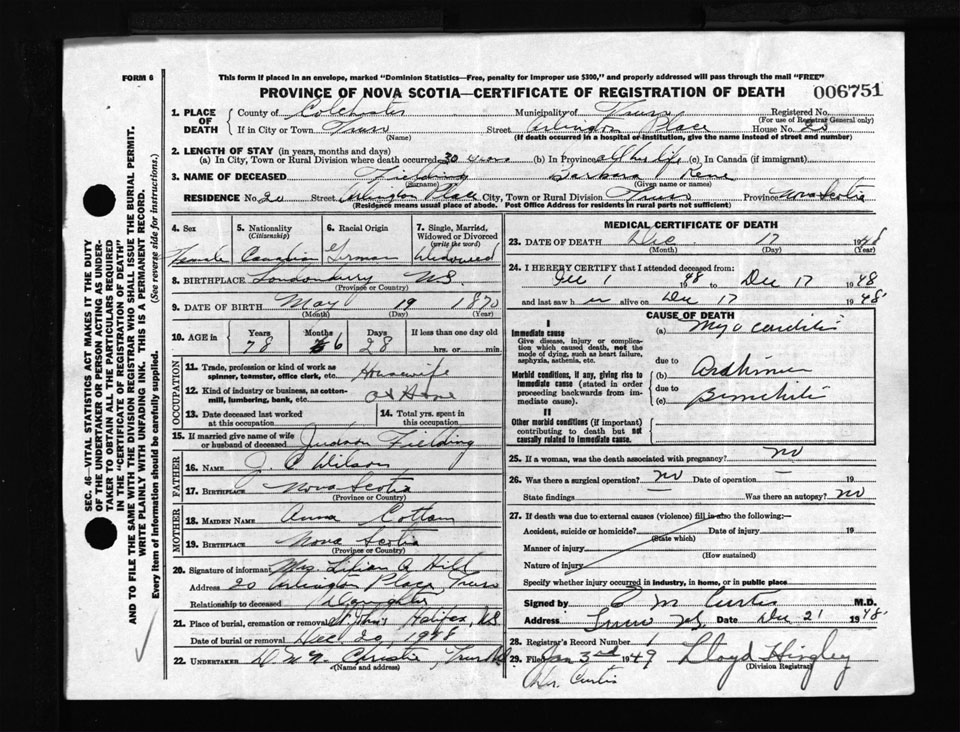 FORM 6
This form if placed in an envelope, marked "Dominion Statistics—Free, penalty for improper use $300," and properly addressed will pass through the mail "FREE"
PROVINCE OF NOVA SCOTIA—CERTIFICATE OF REGISTRATION OF DEATH
006751
1. PLACE OF DEATH
County of Colchester Municipality of Truro Registered No. (For use of Registrar General only)
If in City or Town Truro (Name) Street Arlington Place House No. 20
(If death occurred in a hospital or institution, give the name instead of street and number)
2. LENGTH OF STAY (in years, months and days)
(a) In City, Town or Rural Division where death occurred 30 years (b) In Province all his life (c) In Canada (if immigrant)
3. NAME OF DECEASED Fielding (Surname) Barbara Rene (Given name or names)
RESIDENCE No. 20 Street Arlington Place City, Town or Rural Division Truro Province Nova Scotia
(Residence means usual place of abode. Post Office Address for residents in rural parts not sufficient)
4. Sex Female
5. Nationality (Citizenship) Canadian
6. Racial Origin German
7. Single, Married, Widowed or Divorced (write the word) Widowed
8. BIRTHPLACE Londonderry N.S. (Province or Country)
9. DATE OF BIRTH May 19 1870
(Month) (Day) (Year)
10. AGE in Years 78 Months 6 Days 28 If less than one day old hrs. or min.
OCCUPATION
11. Trade, profession or kind of work as spinner, teamster, office clerk, etc. Housewife
12. Kind of industry or business, as cotton-mill, lumbering, bank, etc. At Home
13. Date deceased last worked at this occupation
14. Total yrs. spent in this occupation
15. If married give name of wife or husband of deceased Judson Fielding
FATHER
16. NAME J. C Wilson
17. BIRTHPLACE Nova Scotia (Province or Country)
MOTHER
18. MAIDEN NAME Anna Cottam
19. BIRTHPLACE Nova Scotia (Province or Country)
20. Signature of informant Mrs. Lilian A Hill
Address 20 Arlington Place Truro
Relationship to deceased Daughter
21. Place of burial, cremation or removal St John's Halifax, N.S.
Date of burial or removal Dec 20, 1948
22. UNDERTAKER Christie, Truro
(Name and address)
MEDICAL CERTIFICATE OF DEATH
23. DATE OF DEATH Dec. 17 1948
(Month) (Day) (Year)
24. I HEREBY CERTIFY that I attended deceased from:
Dec 1 1948 to Dec 17 1948
and last saw her alive on Dec 17 1948
CAUSE OF DEATH
I
Immediate cause
Give disease, injury or complication which caused death, not the mode of dying, such as heart failure, asphyxia, asthenia, etc.
(a) Myocarditis
due to
Morbid conditions, if any, giving rise to immediate cause (stated in order proceeding backwards from immediate cause).
(b)
due to
(c) Bronchitis
II
Other morbid conditions (if important) contributing to death but not causally related to immediate cause.
25. If a woman, was the death associated with pregnancy? no
26. Was there a surgical operation? no Date of operation 19
State findings Was there an autopsy? no
27. If death was due to external causes (violence) fill in also the following:—
Accident, suicide or homicide? (State which) Date of injury 19
Manner of injury (How sustained)
Nature of injury
Specify whether injury occurred in industry, in home, or in public place
Signed by C M Curtis M.D.
Address Truro N.S. Date Dec 21 1948
28. Registrar's Record Number 1
29. Filed Jan 3rd 1949 Lloyd Hingley
(Division Registrar)
Curtis
SEC. 46—VITAL STATISTICS ACT MAKES IT THE DUTY
OF THE UNDERTAKER OR PERSON ACTING AS UNDER-
TAKER TO OBTAIN ALL THE PARTICULARS REQUIRED
IN THE "CERTIFICATE OF REGISTRATION OF DEATH"
AND TO FILE THE SAME WITH THE DIVISION REGISTRAR WHO SHALL ISSUE THE BURIAL PERMIT.
WRITE PLAINLY WITH UNFADING INK. THIS IS A PERMANENT RECORD.
Every item of information should be carefully supplied. (See reverse side for instructions.)